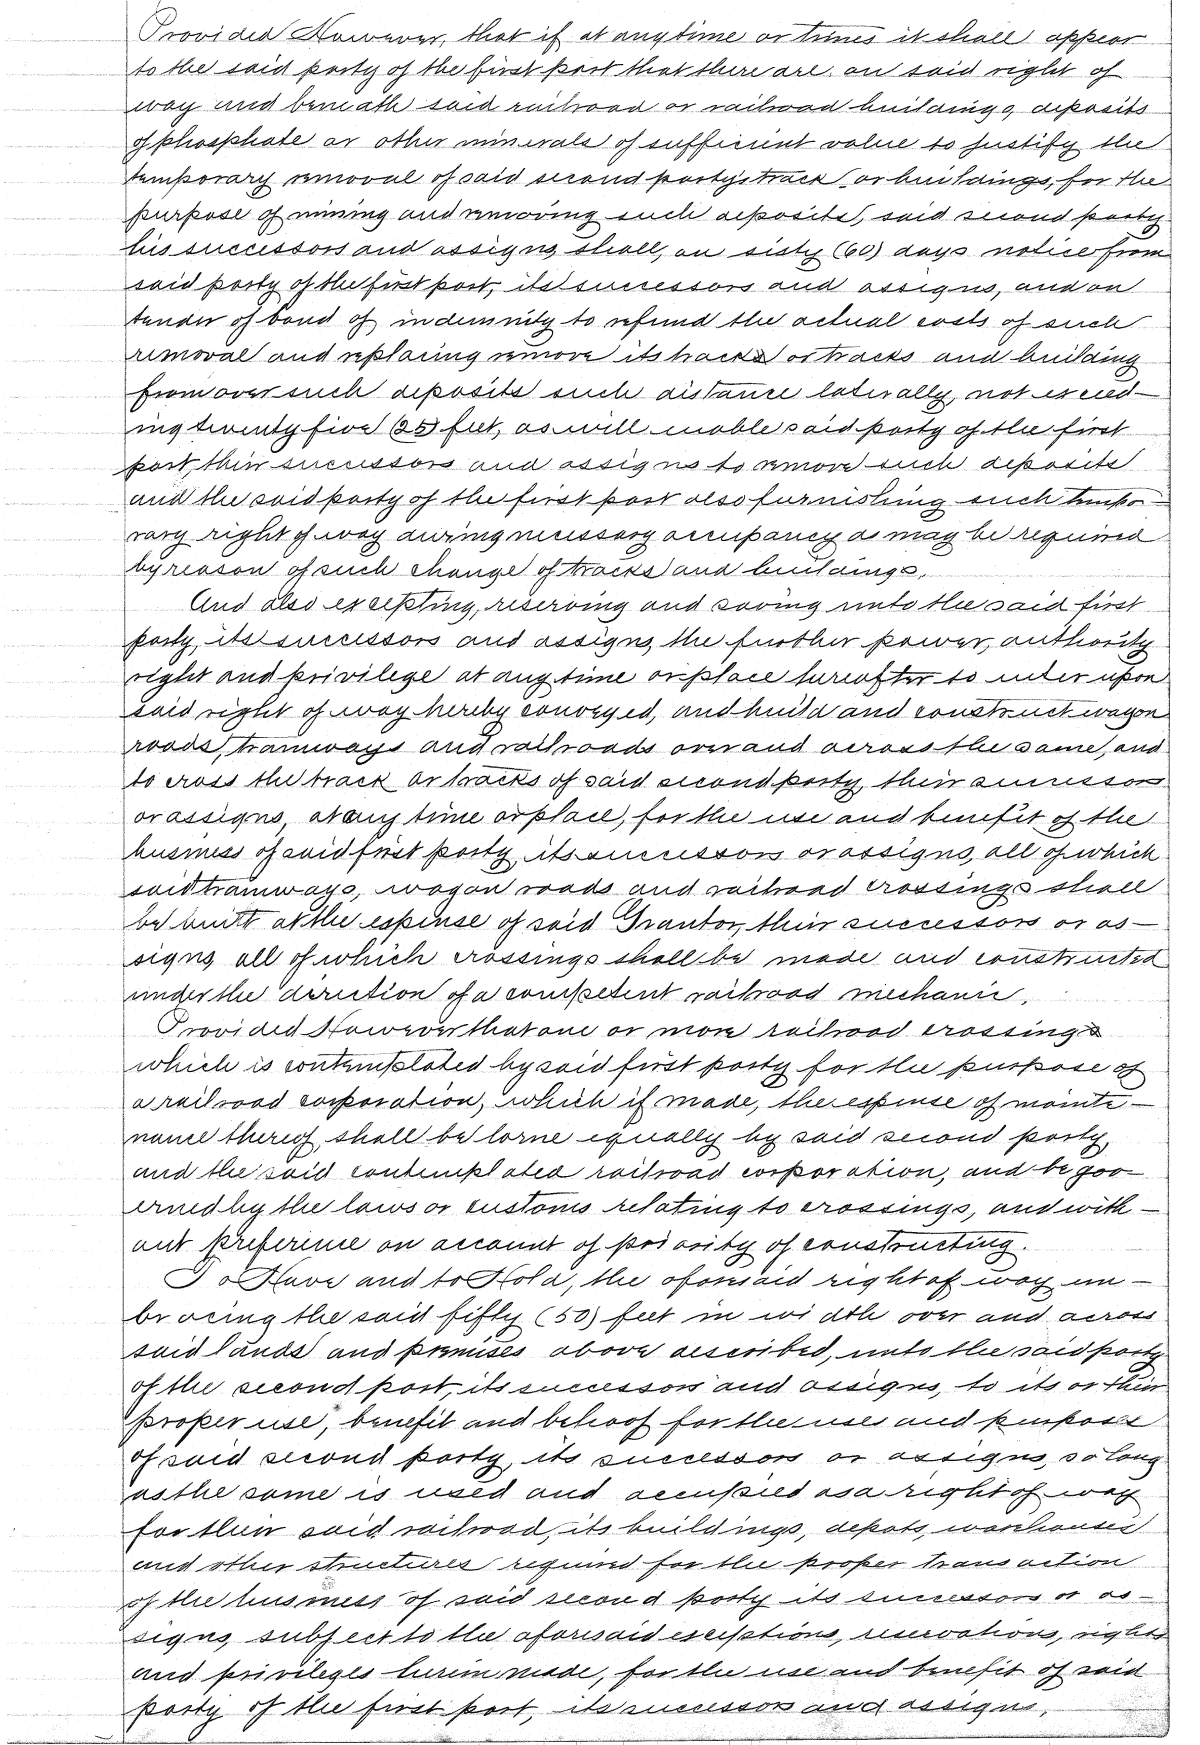 Provided However, that if at anytime or times it shall appear
to the said party of the first part that there are on said right of
way and beneath said railroad or railroad buildings, deposits
of phosphate or other minerals of sufficient value to justify the
temporary removal of said second party's track or buildings, for the
purpose of mining and removing such deposits, said second party
his successors and assigns shall, on sixty (60) days notice from
said party of the first part, its successors and assigns, and on
tender of bond of indemnity to refund the actual costs of such
removal and replacing remove its tracks or tracks and building
from over such deposits such distance laterally, not exceed-
ing twenty five (25) feet, as will enable said party of the first
part, their successors and assigns to remove such deposits
and the said party of the first part also furnishing such tempo-
rary right of way during necessary occupancy as may be required
by reason of such change of tracks and buildings.
And also excepting, reserving and saving unto the said first
party, its successors and assigns, the further power, authority
right and privilege at any time or place hereafter to enter upon
said right of way hereby conveyed, and build and construct wagon
roads, tramways and railroads over and across the same, and
to cross the track or tracks of said second party, their successors
or assigns, at any time or place, for the use and benefit of the
business of said first party, its successors or assigns, all of which
said tramways, wagon roads and railroad crossings shall
be built at the expense of said Grantor, their successors or as-
signs, all of which crossings shall be made and constructed
under the direction of a competent railroad mechanic.
Provided However that one or more railroad crossings
which is contemplated by said first party for the purpose of
a railroad corporation, which if made, the expense of mainte-
nance thereof, shall be borne equally by said second party,
and the said contemplated railroad corporation, and be gov-
erned by the laws or customs relating to crossings, and with-
out preference on account of priority of constructing.
To Have and to Hold, the aforesaid right of way em-
bracing the said fifty (50) feet in width over and across
said lands and premises above described, unto the said party
of the second part, its successors and assigns, to its or their
proper use, benefit and behoof for the uses and purposes
of said second party, its successors or assigns, so long
as the same is used and occupied as a right of way
for their said railroad, its buildings, depots, warehouses
and other structures required for the proper transaction
of the business of said second party its successors or as-
signs, subject to the aforesaid exceptions, reservations, rights
and privileges herein made, for the use and benefit of said
party of the first part, its successors and assigns.